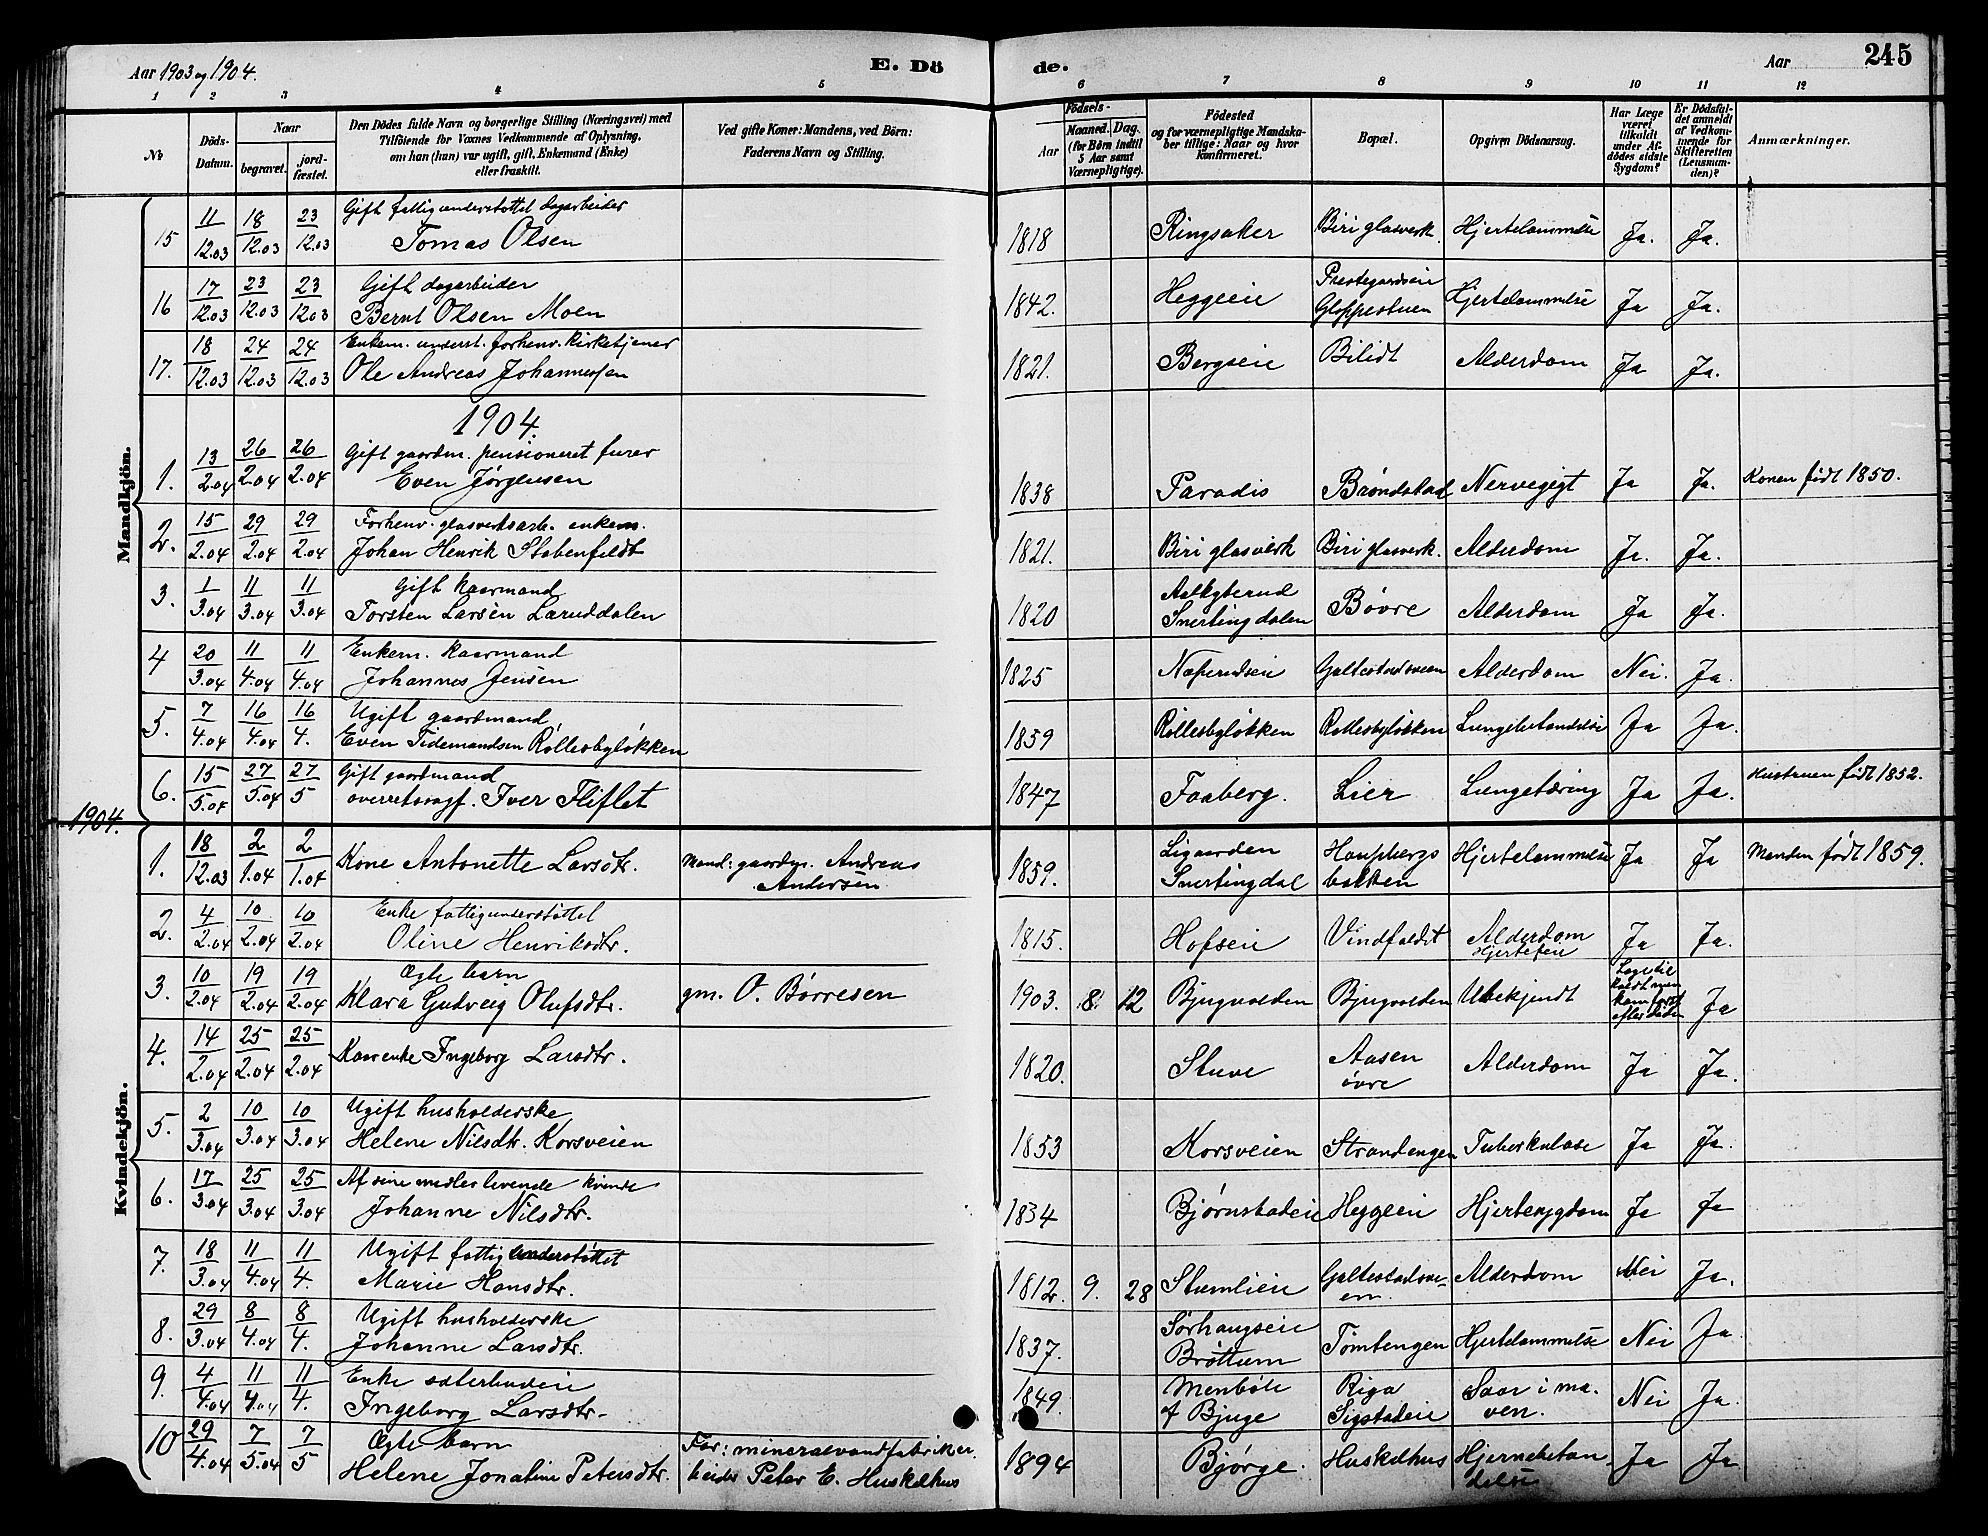 Aar 1903 og 1904.
E. Dö
de.
Aar
245
1 2 3 4 5 6 7 8 9 10 11 12
No
Döds-Datum.
Naar
begravet.
jord-fæstet.
Den Dödes fulde Navn og borgerlige Stilling (Næringsvei) med
Tilföiende for Voxnes Vedkommende af Oplysning,
om han (hun) var ugift, gift, Enkemand (Enke)
eller fraskilt.
Ved gifte Koner: Mandens, ved Börn:
Faderens Navn og Stilling.
Födsels-
Aar
Maaned. Dag.
(for Börn indtil
5 Aar samt
Værnepligtige).
Födested
og for værnepligtige Mandska-
ber tillige: Naar og hvor
konfirmeret.
Bopæl.
Opgiven Dödsaarsag.
Har Læge
været
tilkaldt
under Af-
dödes sidste
Sygdom?
Er Dödsfal-
det anmeldt
af Vedkom-
mende for
Skifteretten
(Lensman-
den)?
Anmærkninger.
Mandkjön.
15 11/12.03 18/12.03 23/12.03 Gift fattigunderstøttet dagarbeider
Tomas Olsen 1818 Ringsaker Biri glasverk. Hjertelammelse Ja. Ja.
16 17/12.03 23/12.03 23/12.03 Gift dagarbeider
Bernt Olsen Moen 1842. Heggeeie Prestegardseie Gloppestuen Hjertelammelse Ja Ja.
17. 18/12.03 24/12.03 24/12.03 Enkem. underst. forhenv. kirketjener
Ole Andreas Johannessen 1821. Bergseie Bilidt Alderdom Ja Ja.
1904.
1. 13/2.04 26/2.04 26/2.04 Gift gaardm. pensioneret furer
Even Jørgensen 1838 Paradis Brøndstad Nervegigt Ja Ja. Konen født 1850.
2. 15/2.04 29/2.04 29/2.04 Forhenv. glasverksarb. enkem.
Johan Henrik Stobenfeldt 1821. Biri glasverk Biri glasverk. Alderdom Ja. Ja.
3. 1/3.04 11/3.04 11/3.04 Gift kaarmand
Torsten Larsen Laruddalen 1820 Snertingdalen Bøvre Alderdom Ja Ja.
4 20/3.04 11/4.04 11/4.04 Enkem. kaarmand
Johannes Jensen 1825 Næperudseie Galtestadsveen Alderdom Nei. Ja.
5. 7/4.04 16/4.04 16/4. Ugift gaardmand
Even Tidemandsen Rollesbyløkken 1859 Rollesbyløkken Rollesbyløkken Lungebetændelse Ja Ja.
6. 15/5.04 27/5.04 27/5 Gift gaardmand
overretssagf. Iver Fliflet 1847 Faaberg. Lier Lungetæring Ja Ja. Hustruen født 1852.
1904.
Kvindekjön.
1. 18/12.03 2/1.04 2/1.04 Kone Antonette Larsdtr. Mand: gaardm. Andreas
Andersen 1859. Ligaarden Snertingdal Haugsbergs bakken Hjertelammelse Ja Ja Manden født 1859.
2. 4/2.04 10/2.04 10/2.04 Enke fattigunderstøttet
Oline Henriksdtr. 1815. Hofseie Vindfaldet Alderdom Hjertefeil Ja Ja.
3. 10/2.04 19/2.04 19/2.04 Ægte barn
Klara Gudveig Olufsdtr. gm. O. Børresen 1903. 8. 12 Bjugvolden Bjugvolden Ubekjendt Læge til kaldt men kom først efter døden Ja
4. 14/2.04 25/2.04 25/2.04 Kaarenke Ingeborg Larsdtr. 1820. Stuve Aasen øvre Alderdom Ja Ja.
5. 2/3.04 10/3.04 10/3.04 Ugift husholderske
Helene Nilsdtr. Korsveien 1853 Korsveien Strandengen Tuberkulose Ja Ja.
6. 17/3.04 25/3.04 25/3.04 Af sine midler levende kvinde
Johanne Nilsdtr. 1834 Bjørnstadeie Heggeeie Hjertesygdom Ja Ja
7. 18/3.04 11/4.04 11/4. Ugift fattigunderstøttet
Marie Hansdtr. 1812. 9. 28 Stumlieie Galtestadsve-en Alderdom Nei Ja.
8. 29/3.04 8/4.04 8/4. Ugift husholderske
Johanne Larsdtr. 1837. Sørhaugseie Brøttum Tømtengen Hjertelammelse Nei Ja.
9. 4/4.04 11/4.04 11/4. Enke
Ingeborg Larsdtr. 1849. af Bjuge Riga Sigstadeie Saar i ma-ven. Nei Ja.
10 29/4.04 7/5.04 7/5 Ægte barn
Helene Jonatine Petersdtr. Far: mineralvandfabrikar-
beider Peter E. Huskelhus 1894 Bjørge. Huskelhus Hjernebetændelse Ja Ja